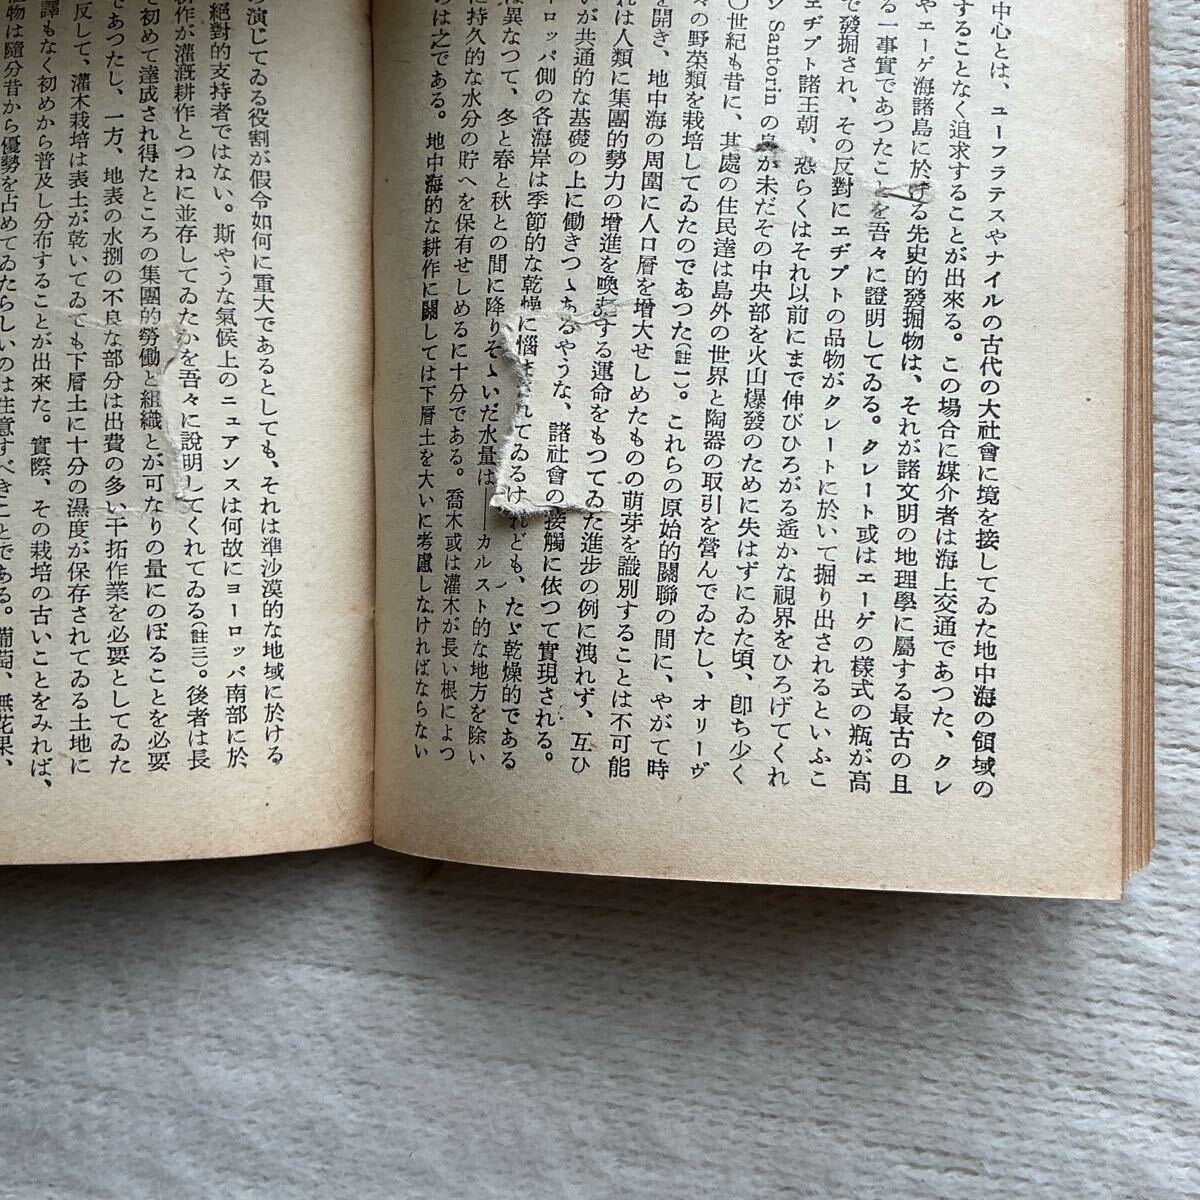 中心とは、ユーフラテスやナイルの古代の大社會に境を接してゐた地中海の領域の
することなく追求することが出來る。この場合に媒介者は海上交通であつた、クレ
やエーゲ海諸島に於ける先史的發掘物は、それが諸文明の地理學に屬する最古の且
る一事實であつたことを吾々に證明してゐる。クレート或はエーゲの樣式の瓶が高
で發掘され、その反對にエヂプトの品物がクレートに於いて掘り出されるといふこ
エヂプト諸王朝、恐らくはそれ以前にまで伸びひろがる遙かな視界をひろげてくれ
ン Santorin の島が未だその中央部を火山爆發のために失はずにゐた頃、卽ち少く
〇世紀も昔に、其處の住民達は島外の世界と陶器の取引を營んでゐたし、オリーヴ
々の野菜類を栽培してゐたのであつた(註一)。これらの原始的關聯の間に、やがて時
を開き、地中海の周圍に人口層を增大せしめたものの萌芽を識別することは不可能
れは人類に集團的勢力の增進を喚起する運命をもつてゐた進步の例に洩れず、互ひ
いが共通的な基礎の上に働きつゝあるやうな、諸社會の接觸に依つて實現される。
ロッパ側の各海岸は季節的な乾燥に惱まされてゐるけれども、たゞ乾燥的である
は異なつて、冬と春と秋との間に降りそゝいだ水量は――カルスト的な地方を除い
に持久的な水分の貯へを保有せしめるに十分である。喬木或は灌木が長い根によつ
のは之である。地中海的な耕作に關しては下層土を大いに考慮しなければならない
の演じてゐる役割が假令如何に重大であるとしても、それは準沙漠的な地域に於ける
絕對的支持者ではない。斯やうな氣候上のニュアンスは何故にヨーロッパ南部に於
耕作が灌漑耕作とつねに並存してゐたかを吾々に說明してくれてゐる(註三)。後者は長
て初めて達成され得たところの集團的勞働と組織とが可なりの量にのぼることを必要
であつたし、一方、地表の水捌の不良な部分は出費の多い干拓作業を必要としてゐた
反して、灌木栽培は表土が乾いてゐても下層土に十分の濕度が保存されてゐる土地に
譯もなく初めから普及し分布することが出來た。實際、その栽培の古いことをみれば、
植物は隨分昔から優勢を占めてゐたらしいのは注意すべきことである。葡萄、無花果、